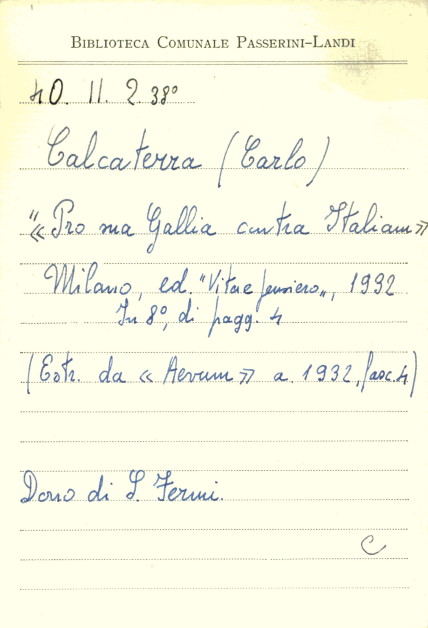 BIBLIOTECA COMUNALE PASSERINI-LANDI
40. II. 2. 38°
Calcaterra (Carlo)
"« Pro ma Gallia contra Italiam »
Milano, ed. "Vita e pensiero„, 1932
In 8°, di pagg. 4
(Estr. da « Aevum » a. 1932, fasc. 4)
Dono di S. Fermi.
C